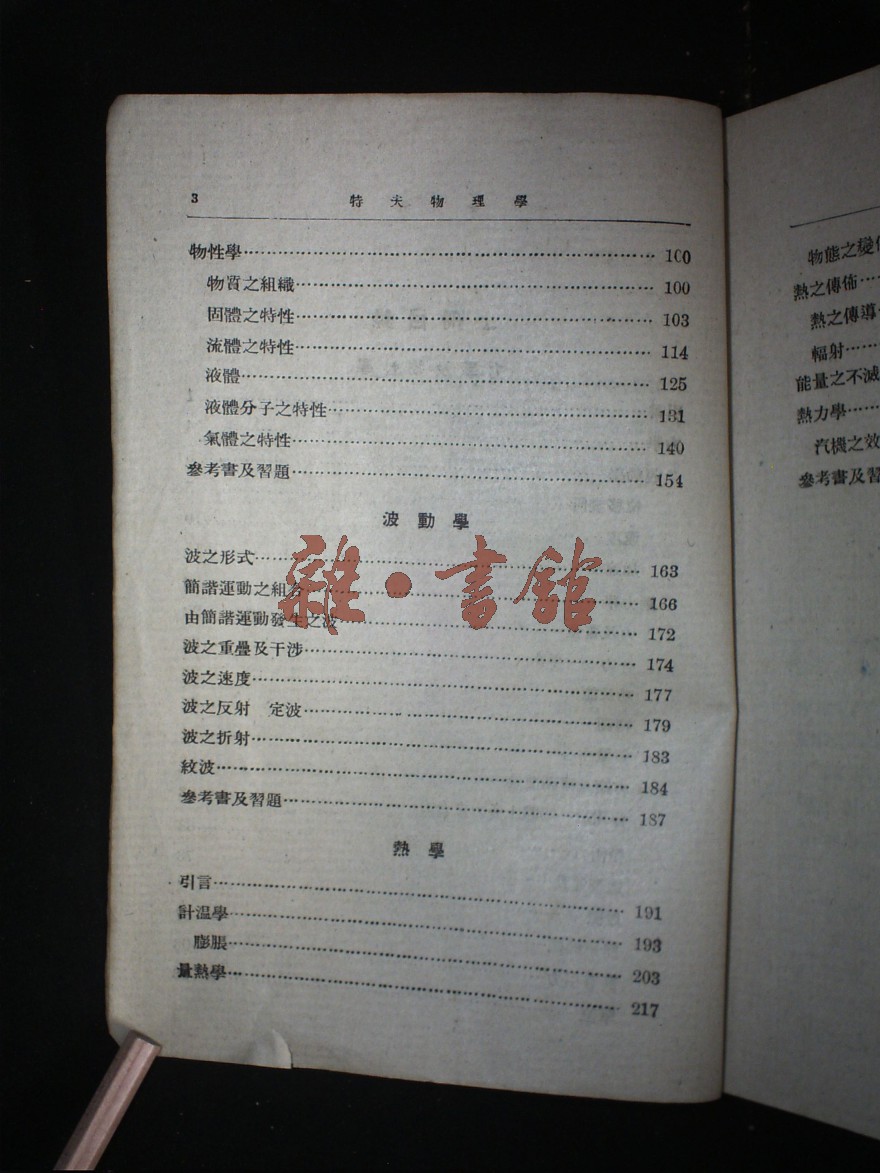 3 特夫物理學
物性學 100
物質之組織 100
固體之特性 103
流體之特性 114
液體 125
液體分子之特性 131
氣體之特性 140
參考書及習題 154
波動學
波之形式 163
簡諧運動之組合 166
由簡諧運動發生之波 172
波之重疊及干涉 174
波之速度 177
波之反射 定波 179
波之折射 183
紋波 184
參考書及習題 187
熱學
引言 191
計温學 193
膨脹 203
量熱學 217
雜·書館
物態之變
熱之傳佈
熱之傳導
輻射
能量之不滅
熱力學
汽機之效
參考書及習